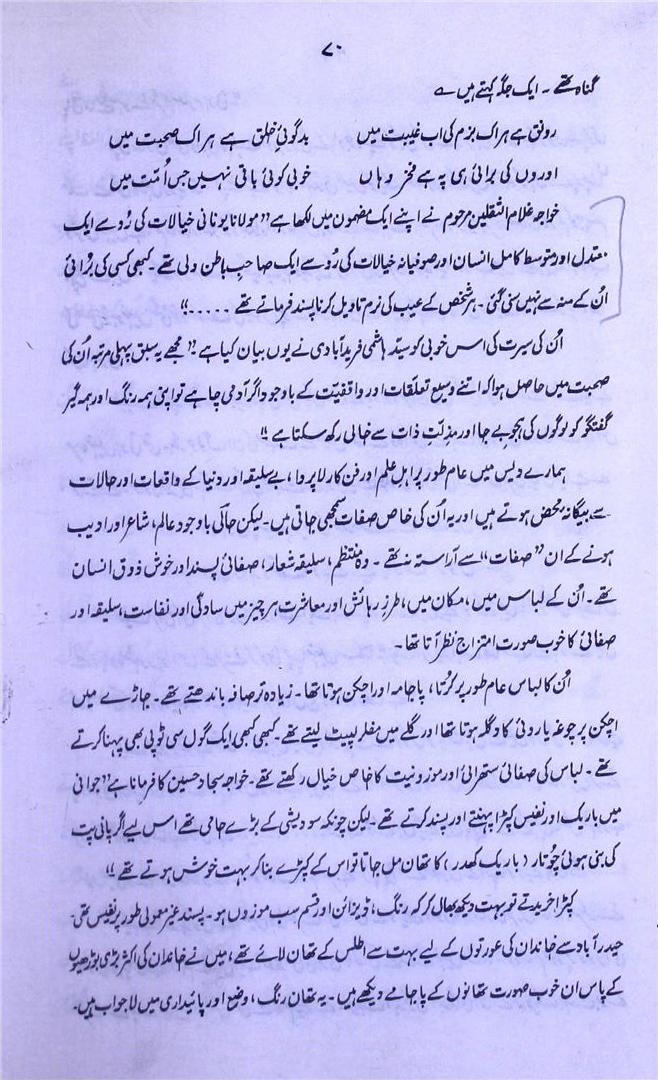 ۷۰
گناہ تھے ۔ ایک جگہ کہتے ہیں ؎
رونق ہے ہر اک بزم کی اب غیبت میں     بدگوئیِ خلق ہے ہر اک صحبت میں
اوروں کی برائی ہی پہ ہے فخر وہاں     خوبی کوئی باقی نہیں جس اُمت میں
خواجہ غلام الثقلین مرحوم نے اپنے ایک مضمون میں لکھا ہے "مولانا یونانی خیالات کی رُو سے ایک
معتدل اور متوسط کامل انسان اور صوفیانہ خیالات کی رُو سے ایک صاحبِ باطن ولی تھے ۔ کبھی کسی کی بُرائی
اُن کے منہ سے نہیں سنی گئی ۔ ہر شخص کے عیب کی نرم تاویل کرنا پسند فرماتے تھے ۔۔۔۔۔"
اُن کی سیرت کی اس خوبی کو سیّد ہاشمی فرید آبادی نے یوں بیان کیا ہے "مجھے یہ سبق پہلی مرتبہ اُن کی
صحبت میں حاصل ہوا کہ اتنے وسیع تعلقات اور واقفیّت کے باوجود اگر آدمی چاہے تو اپنی ہمہ رنگ اور ہمہ گیر
گفتگو کو لوگوں کی ہجوِ بے جا اور مذلّتِ ذات سے خالی رکھ سکتا ہے"
ہمارے دیس میں عام طور پر اہلِ علم اور فن کار لاپروا، بے سلیقہ اور دنیا کے واقعات اور حالات
سے بیگانہ محض ہوتے ہیں اور یہ اُن کی خاص صفات سمجھی جاتی ہیں ۔ لیکن حالی باوجود عالم، شاعر اور ادیب
ہونے کے ان "صفات" سے آراستہ نہ تھے ۔ وہ منتظم، سلیقہ شعار، صفائی پسند اور خوش ذوق انسان
تھے ۔ اُن کے لباس میں، مکان میں، طرزِ رہائش اور معاشرت ہر چیز میں سادگی اور نفاست، سلیقہ اور
صفائی کا خوب صورت امتزاج نظر آتا تھا ۔
اُن کا لباس عام طور پر کُرتا، پاجامہ اور اچکن ہوتا تھا ۔ زیادہ تر صافہ باندھتے تھے ۔ جاڑے میں
اچکن پر چوغہ یا روئی کا دگلہ ہوتا تھا اور گلے میں مفلر لپیٹ لیتے تھے ۔ کبھی کبھی ایک گول سی ٹوپی بھی پہنا کرتے
تھے ۔ لباس کی صفائی ستھرائی اور موزونیت کا خاص خیال رکھتے تھے ۔ خواجہ سجاد حسین کا فرمانا ہے "جوانی
میں باریک اور نفیس کپڑا پہنتے اور پسند کرتے تھے ۔ لیکن چونکہ سودیشی کے بڑے حامی تھے اس لیے اگر پانی پت
کی بنی ہوئی چوتار (باریک کھدر) کا تھان مل جاتا تو اس کے کپڑے بنا کر بہت خوش ہوتے تھے"
کپڑا خریدتے تو بہت دیکھ بھال کر کہ رنگ، ڈیزائن اور قسم سب موزوں ہو ۔ پسند غیر معمولی طور پر نفیس تھی ۔
حیدرآباد سے خاندان کی عورتوں کے لیے بہت سے اطلس کے تھان لائے تھے، میں نے خاندان کی اکثر بڑی بوڑھیوں
کے پاس ان خوب صورت تھانوں کے پاجامے دیکھے ہیں ۔ یہ تھان رنگ، وضع اور پائیداری میں لاجواب ہیں ۔